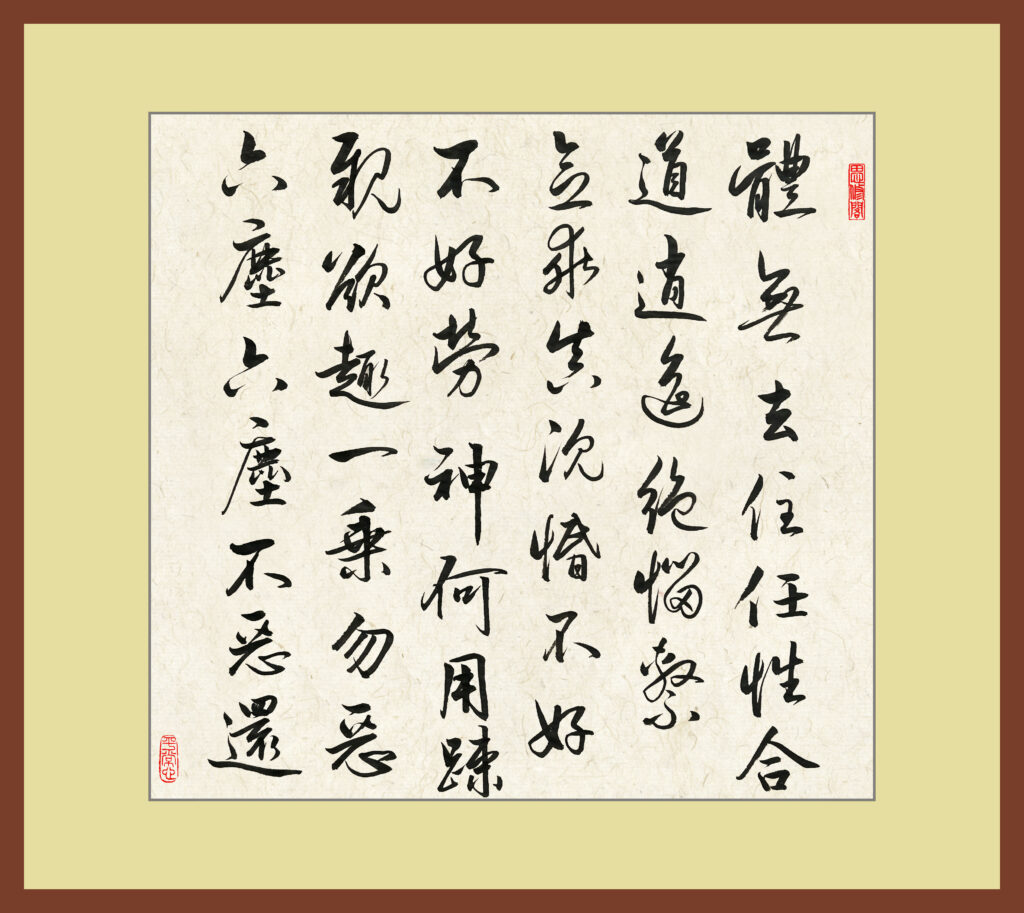 思修閣
體無去住任性合
道逍遙絕惱繫
念乖真沉惛不好
不好勞神何用踈
親欲趣一乘勿惡
六塵六塵不惡還
平常心